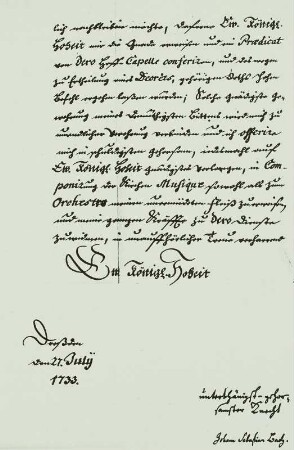 lich nachbleiben möchte, daferne Ew. Königl.
Hoheit mir die Gnade erweisen und ein Prædicat
von Dero Hoff-Capelle conferiren, und deswegen
zu Ertheilung eines Decrets, gehörigen Orths hohen
Befehl ergehen lassen würden; Solche gnädigste Ge-
wehrung meines demüthigsten Bittens wird mich zu
unendlicher Verehrung verbinden und ich offerire
mich in schuldigsten Gehorsam, iedesmahl auf
Ew. Königl. Hoheit gnädigstes Verlangen, in Com-
ponirung der Kirchen Musique sowohl als zum
Orchestre meinen unermüdeten Fleiß zu erweisen,
und meine gantzen Kräffte zu Dero Dienste
zu widmen, in unauffhörlicher Treue verharrend
Ew. Königl. Hoheit
Dreßden
den 27. July
1733.
unterthänigst-gehor-
samster Knecht
Johann Sebastian Bach.